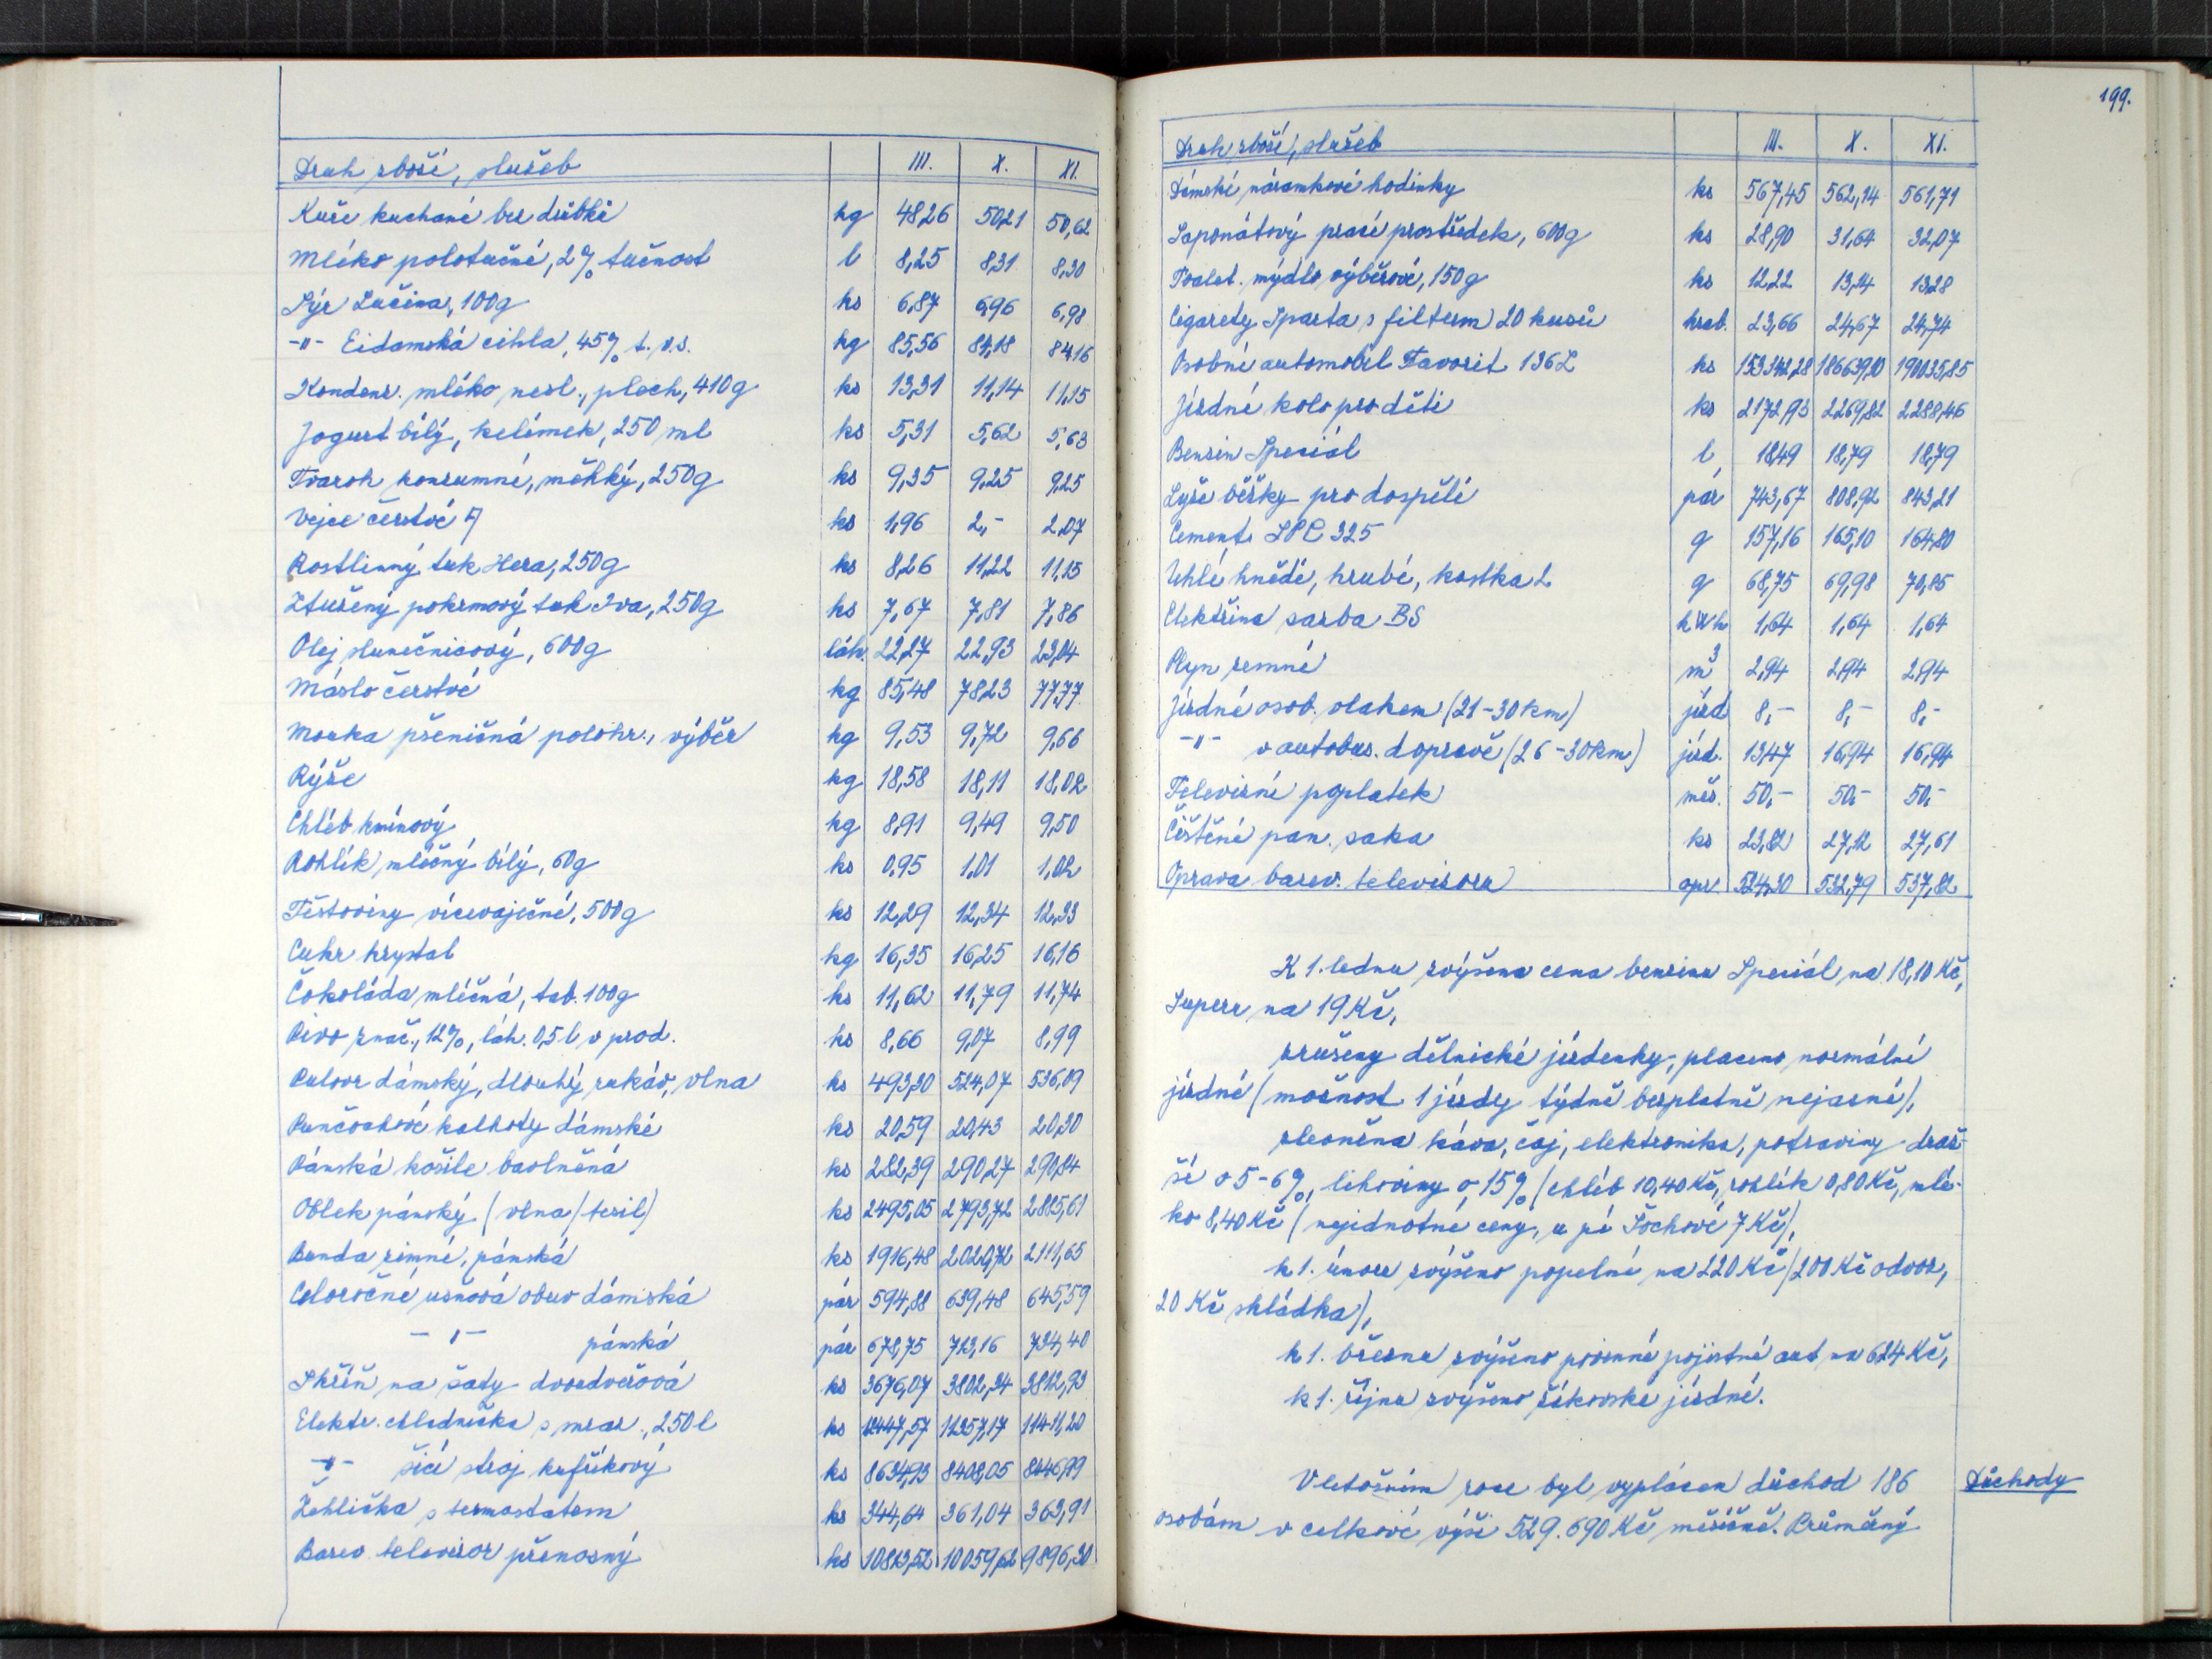 Druh zboží, služeb III. X. XI.
Kuře kuchané bez drůbků kg 48,26 50,21 50,62
Mléko polotučné, 2% tučnost l 8,25 8,31 8,30
Sýr Lučina, 100g ks 6,87 6,96 6,98
-"- Eidamská cihla, 45% t. v.s. kg 85,56 84,18 84,16
Kondenz. mléko nesl., plech, 410g ks 13,31 11,14 11,15
Jogurt bílý, kelímek, 250 ml ks 5,31 5,62 5,63
Tvaroh konzumní, měkký, 250g ks 9,35 9,25 9,25
Vejce čerstvé ks 1,96 2,- 2,07
Rostlinný tuk Hera, 250g ks 8,26 11,22 11,15
Ztužený pokrmový tuk Iva, 250g ks 7,67 7,81 7,86
Olej slunečnicový, 600g láh. 22,27 22,93 23,04
Máslo čerstvé kg 85,48 78,23 77,77
Mouka pšeničná polohr., výběr kg 9,53 9,72 9,66
Rýže kg 18,58 18,11 18,02
Chléb kmínový kg 8,91 9,49 9,50
Rohlík mléčný bílý, 60g ks 0,95 1,01 1,02
Těstoviny vícevaječné, 500g ks 12,29 12,34 12,33
Cukr krystal kg 16,35 16,25 16,16
Čokoláda mléčná, tab. 100g ks 11,62 11,79 11,74
Pivo znač., 12%, láh. 0,5 l v prod. ks 8,66 9,07 8,99
Pulovr dámský, dlouhý rukáv, vlna ks 493,30 524,07 536,09
Punčochové kalhoty dámské ks 20,59 20,43 20,30
Pánská košile bavlněná ks 282,39 290,27 290,84
Oblek pánský (vlna/tesil) ks 2495,05 2793,72 2885,61
Bunda zimní, pánská ks 1916,48 2020,72 2111,65
Celoroční usňová obuv dámská pár 594,88 639,48 645,59
-"- pánská pár 678,75 713,16 734,40
Skříň na šaty dvoudveřová ks 3676,07 3802,34 3812,93
Elektr. chladnička s mraz., 250 l ks 12447,57 11357,17 11411,20
-"- šicí stroj kufříkový ks 8634,93 8408,05 8446,99
Žehlička s termostatem ks 344,64 361,04 363,91
Barev. televizor přenosný ks 10813,52 10059,62 9896,30
199.
Druh zboží, služeb III. X. XI.
Dámské náramkové hodinky ks 567,45 562,14 561,71
Saponátový prací prostředek, 600g ks 28,90 31,64 32,07
Toalet. mýdlo výběrové, 150g ks 12,22 13,14 13,28
Cigarety Sparta s filtrem 20 kusů krab. 23,66 24,67 24,74
Osobní automobil Favorit 136L ks 153342,28 186639,10 190035,85
Jízdní kolo pro děti ks 2172,93 2269,82 2288,46
Benzin Speciál l 18,49 18,79 18,79
Lyže běžky pro dospělé pár 743,67 808,92 843,21
Cement 325 q 157,16 165,10 164,80
Uhlí hnědé, hrubé, kostka 2 q 68,75 69,98 70,85
Elektřina sazba BS kWh 1,64 1,64 1,64
Plyn zemní m3 2,94 2,94 2,94
Jízdné osob. vlakem (21-30km) jízd 8,- 8,- 8,-
-"- v autobus. dopravě (26-30km) jízd. 13,47 16,94 16,94
Televizní poplatek měs. 50,- 50,- 50,-
Čištění pán. saka ks 23,82 27,12 27,61
Oprava barev. televizoru opr. 524,30 532,79 537,82
K 1. lednu zvýšena cena benzinu Speciál na 18,10 Kč,
Super na 19 Kč,
zrušeny dělnické jízdenky, placeno normální
jízdné (možnost 1 jízdy týdně bezplatně nejasné),
zlevněna káva, čaj, elektronika, potraviny draž-
ší o 5-6%, lihoviny o 15% (chléb 10,40 Kč, rohlík 0,80 Kč, mlé-
ko 8,40 Kč (nejednotné ceny, u pí Šochové 7 Kč),
k 1. únoru zvýšeno popelné na 220 Kč (200 Kč odvoz,
20 Kč skládka),
k 1. březnu zvýšeno povinné pojistné aut na 624 Kč,
k 1. říjnu zvýšeno žákovské jízdné.
V letošním roce byl vyplácen důchod 186
Důchody
osobám v celkové výši 529.690 Kč měsíčně. Průměrný